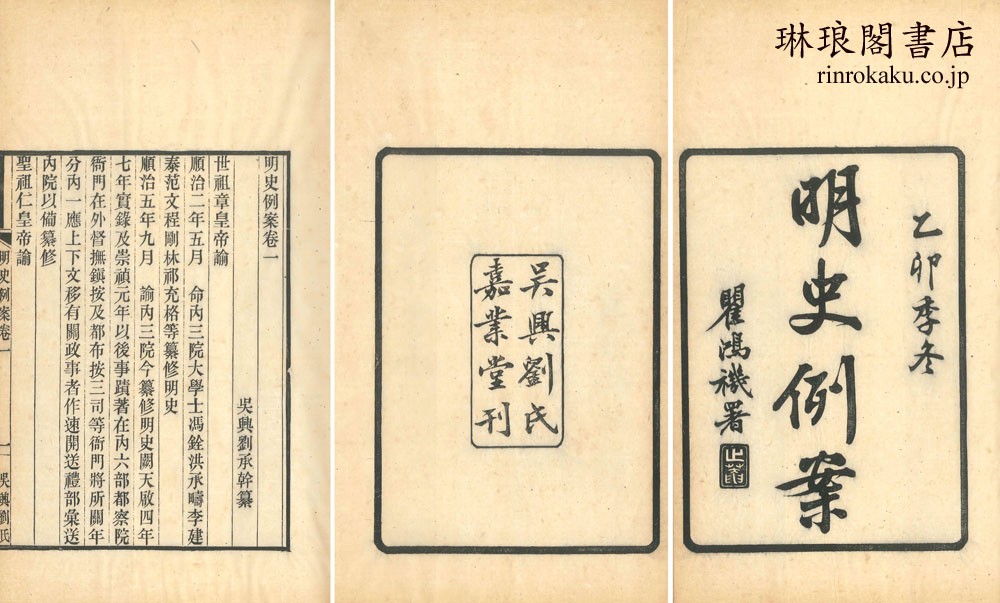 琳琅閣書店
rinrokaku.co.jp
乙卯季冬
明史例案
瞿鴻禨署
止盦
吳興劉氏
嘉業堂刊
明史例案卷一
吳興劉承幹纂
世祖章皇帝諭
順治二年五月　命內三院大學士馮銓洪承疇李建
泰范文程剛林祁充格等纂修明史
順治五年九月　諭內三院今纂修明史闕天啟四年
七年實錄及崇禎元年以後事蹟著在內六部都察院
衙門在外督撫鎮按及都布按三司等衙門將所闕年
分內一應上下文移有關政事者作速開送禮部彙送
內院以備纂修
聖祖仁皇帝諭
明史例案卷一
一
吳興劉氏